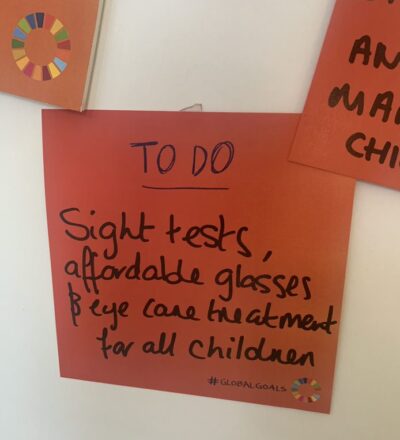 TO DO
Sight tests,
affordable glasses
& eye care treatment
for all children
#GLOBALGOALS
AN
MA
CHI